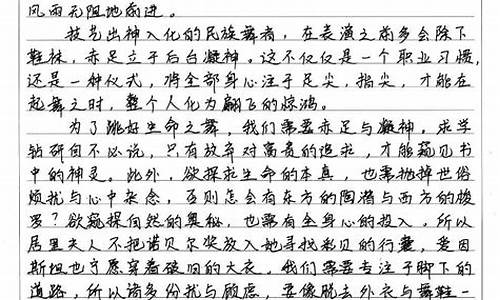 风雨无阻地前进。
技艺出神入化的民族舞者，在表演之前多会除下
鞋袜，赤足立于后台凝神。这不仅仅是一个职业习惯，
还是一种仪式，将全部身心注于足尖，指尖，才能在
起舞之时，整个人化为翩飞的惊鸿。
为了跳好生命之舞，我们需要赤足与凝神。求学
钻研自不必说，只有放弃对富贵的追求，才能窥见书
中的神灵。此外，欲探求生命的本真，也需抛掉世俗
烦扰与心中杂念，否则怎会有东方的陶潜与西方的梭
罗？欲窥探自然的奥秘，也需有全身心的投入。所以
居里夫人不把诺贝尔奖放入她寻找彩贝的行囊，爱因
斯坦也宁愿穿着破旧的大衣。我们需要专注于脚下的
道路，所以请多份扰与顾虑，要像脱去外衣与舞鞋一